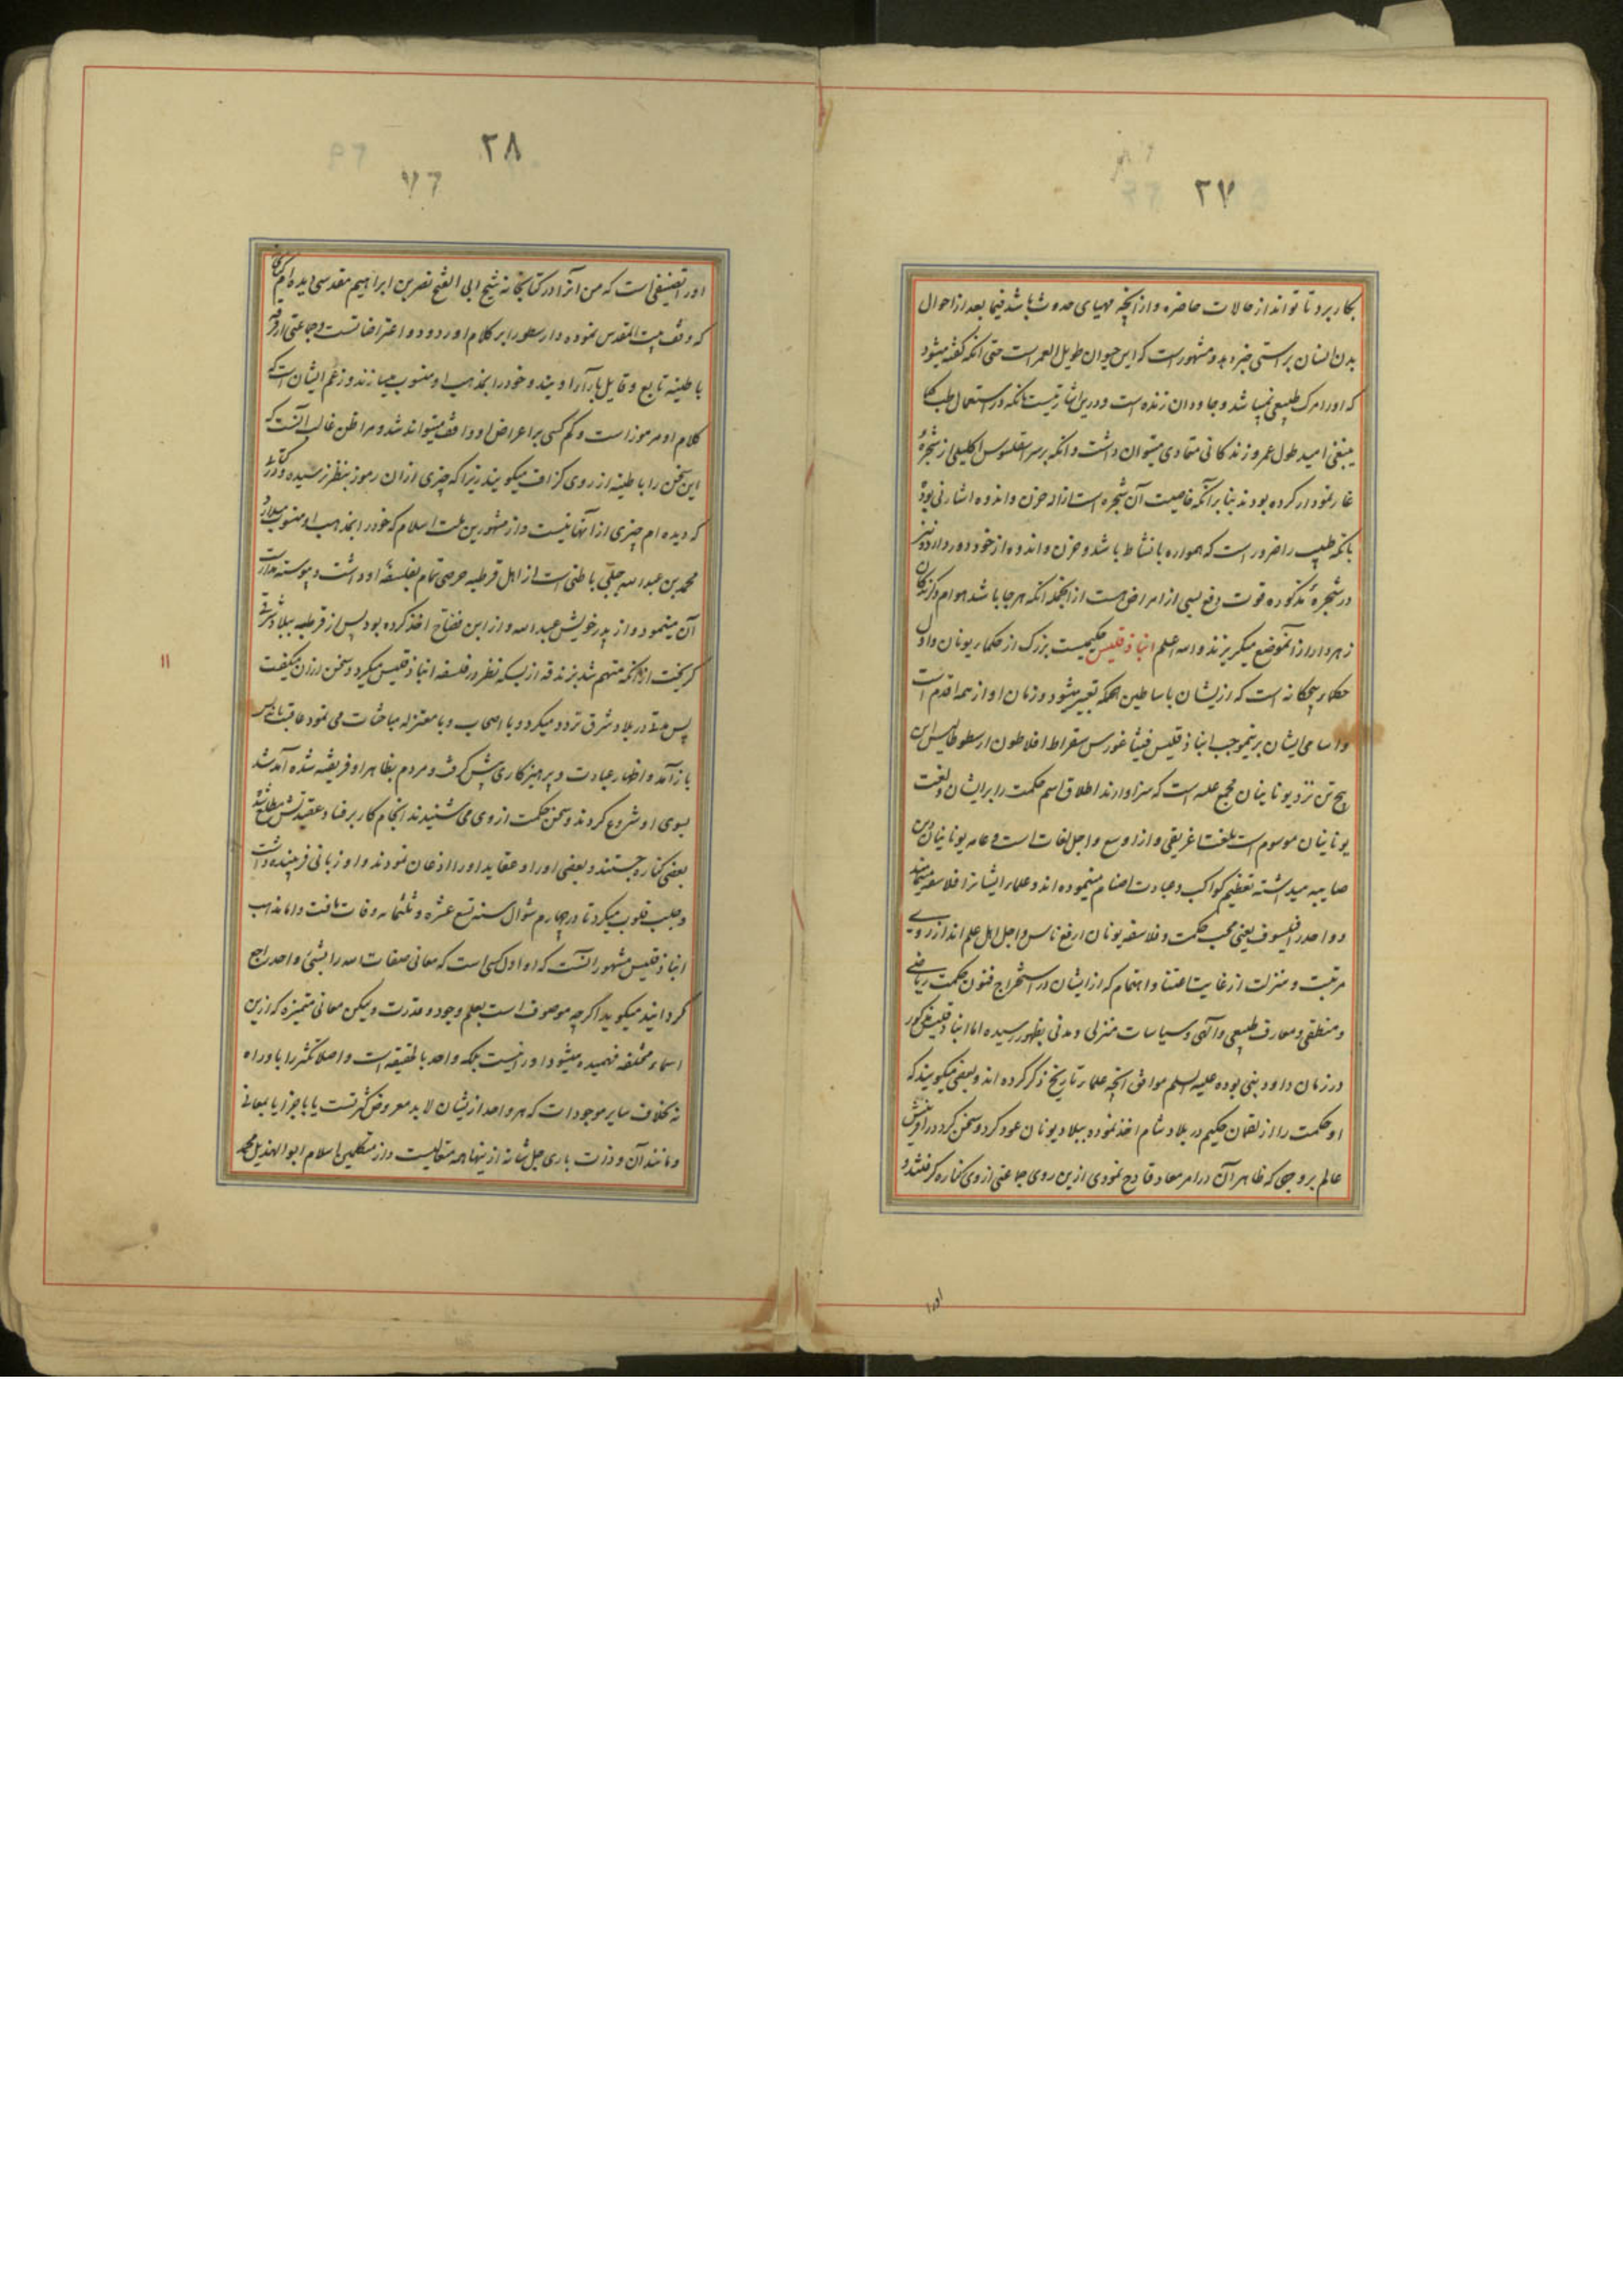 ۲۷
بکار برد تا تواند از حالات حاضره و از آنچه مهیای حدوث باشد فیما بعد از احوال
بدن انسان براستی خبر دهد و مشهور است که این حیوان طویل العمر است حتی انکه گفته میشود
که او را مرک طبیعی نمیباشد و جاودان زنده است و درین اشارتیست بانکه در استعمال طب کما
ینبغی امید طول عمر و زندکانی متمادی میتوان داشت و انکه بر سر اسقلبوس اکلیلی از شجرهٔ
غار نمودار کرده بودند بنا بر آنکه خاصیت آن شجره است ازاله حزن و اندوه اشارتی بود
بانکه طبیب را ضرور است که همواره با نشاط باشد و حزن و اندوه از خود دور دارد و نیز
در شجرهٔ مذکوره قوت دفع بسی از امراض هست از انجمله انکه هر جا باشد هوام و کزندکان
زهردار از آنموضع میکریزند والله اعلم انباذقلیس حکیمیست بزرک از حکماء یونان و اول
حکماء پنجکانه است که ازیشان باساطین الحکمه تعبیر میشود و زمان او از همه اقدم است
و اسامی ایشان برینموجب انباذقلیس فیثاغورس سقراط افلاطون ارسطوطالیس این
پنج تن نزد یونانیان مجمع علیه است که سزاوارند اطلاق اسم حکمت را بر ایشان و لغت
یونانیان موسوم است بلغت اغریقی و از اوسع و اجل لغات است و عامه یونانیان دین
صابیه میداشته تعظیم کواکب و عبادت اصنام مینموده اند و علماء ایشانرا فلاسفه مینامند
و واحد را فیلسوف یعنی محب حکمت و فلاسفه یونان ارفع ناس و اجل اهل علم اند از روی
مرتبت و منزلت از غایت اعتنا و اهتمام که از ایشان در استخراج فنون حکمت ریاضی
و منطقی و معارف طبیعی و الهی و سیاسات منزلی و مدنی بظهور رسیده اما انباذقلیس مذکور
در زمان داود نبی بوده علیه السلم موافق انچه علماء تاریخ ذکر کرده اند و بعضی میکویند که
او حکمت را از لقمان حکیم در بلاد شام اخذ نموده ببلاد یونان عود کرد و سخن کرد در آفرینش
عالم بر وجهی که ظاهر آن در امر معاد قادح نمودی ازین روی جماعتی از وی کناره کرفتند و
۲۸
او را تصنیفی است که من آنرا در کتابخانه شیخ ابی الفتح نصر بن ابراهیم مقدسی دیده ام
که وقف بیت المقدس نموده و ارسطو را بر کلام او ردود و اعتراضاتست و جماعتی از فرقه
باطنیه تابع و قایل بآراء اویند و خود را بمذهب او منسوب میسازند و زعم ایشان است که
کلام او مرموز است و کم کسی بر اغراض او واقف میتواند شد و مرا ظن غالب آنست که
این سخن را باطنیه از روی کزاف میکویند زیرا که چیزی از آن رموز بنظر نرسیده و در کتابی
که دیده ام چیزی از آنها نیست و از مشهورین ملت اسلام که خود را بمذهب او منسوب میدارد
محمد بن عبدالله جبلی باطنی است از اهل قرطبه حرصی تمام بفلسفهٔ او داشت و پیوسته مدارست
آن مینمود و از پدر خویش عبدالله و از ابن فضاح اخذ کرده بود پس از قرطبه ببلاد شرق
کریخت از آنکه متهم شد بزندقه از بسکه نظر در فلسفه انباذقلیس میکرد و سخن از آن میکفت
پس مدتی در بلاد شرق تردد میکرد و با اصحاب و با معتزله مباحثات می نمود عاقبت باندلس
باز آمد و اظهار عبادت و پرهیزکاری پیش کرفت و مردم بظاهر او فریفته شده آمد شد
بسوی او شروع کردند و سخن حکمت از وی می شنیدند انجام کار بر فساد عقیدتش مطلع شده
بعضی کناره جستند و بعضی او را و عقاید او را اذعان نمودند و او زبانی فریبنده داشت
و جلب قلوب میکرد تا در چهارم شوال سنه تسع عشره و ثلثمائه وفات یافت و اما مذاهب
انباذقلیس مشهور انست که او اول کسی است که معانی صفات الله را بشئ واحد راجع
کردانید میکوید اکرچه موصوف است بعلم وجود و قدرت و لیکن معانی متمیزه که ازین
اسماء مختلفه فهمیده میشود او را نیست بلکه واحد بالحقیقه است و اصلا تکثر را باو راه
نه بخلاف سایر موجودات که هر واحد ازیشان لابد معروض کثرتست یا باجزا یا بمعانی
و مانند آن و ذات باری جل شانه ازینها همه متعالیست و از متکلمین اسلام ابو الهذیل محمد
۱۱